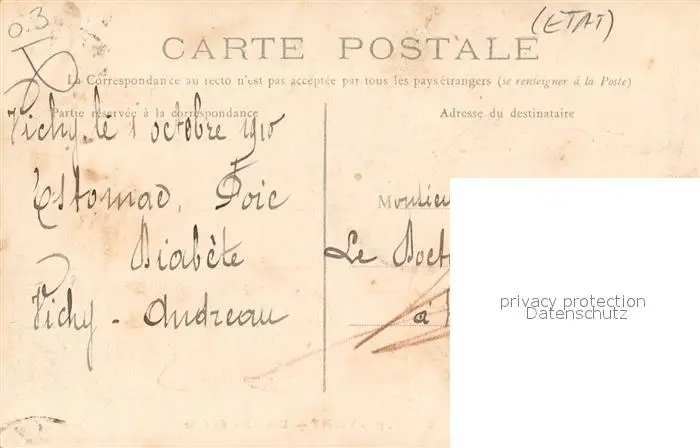 0.3
(ETAT)
CARTE POSTALE
La Correspondance au recto n'est pas acceptée par tous les pays étrangers (se renseigner à la Poste)
Partie réservée à la correspondance
Vichy, le 1 octobre 1910
Estomac, Foie
Diabète
Vichy - Andreau
Adresse du destinataire
Monsieur
Le Doct
à
privacy protection
Datenschutz